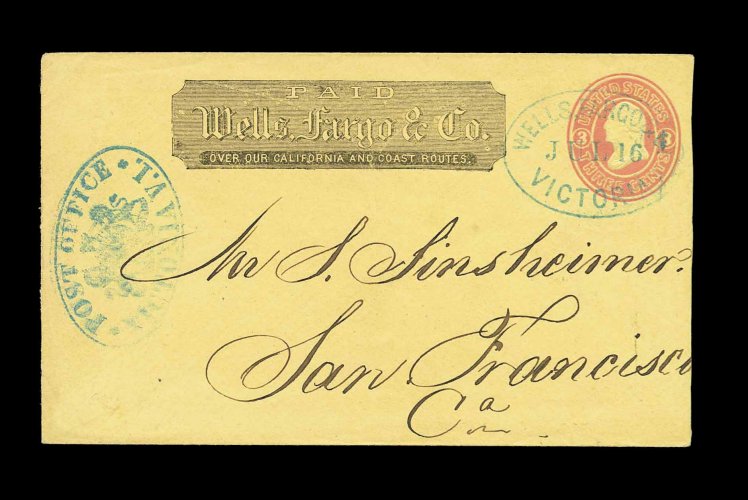 PAID
Wells, Fargo & Co.
OVER OUR CALIFORNIA AND COAST ROUTES.
WELLS, FARGO & Co
JUL 16
VICTORIA
UNITED STATES
3 3
THREE CENTS
POST OFFICE
VICTORIA
Mr S. Sinsheimer.
San Francisco
Ca